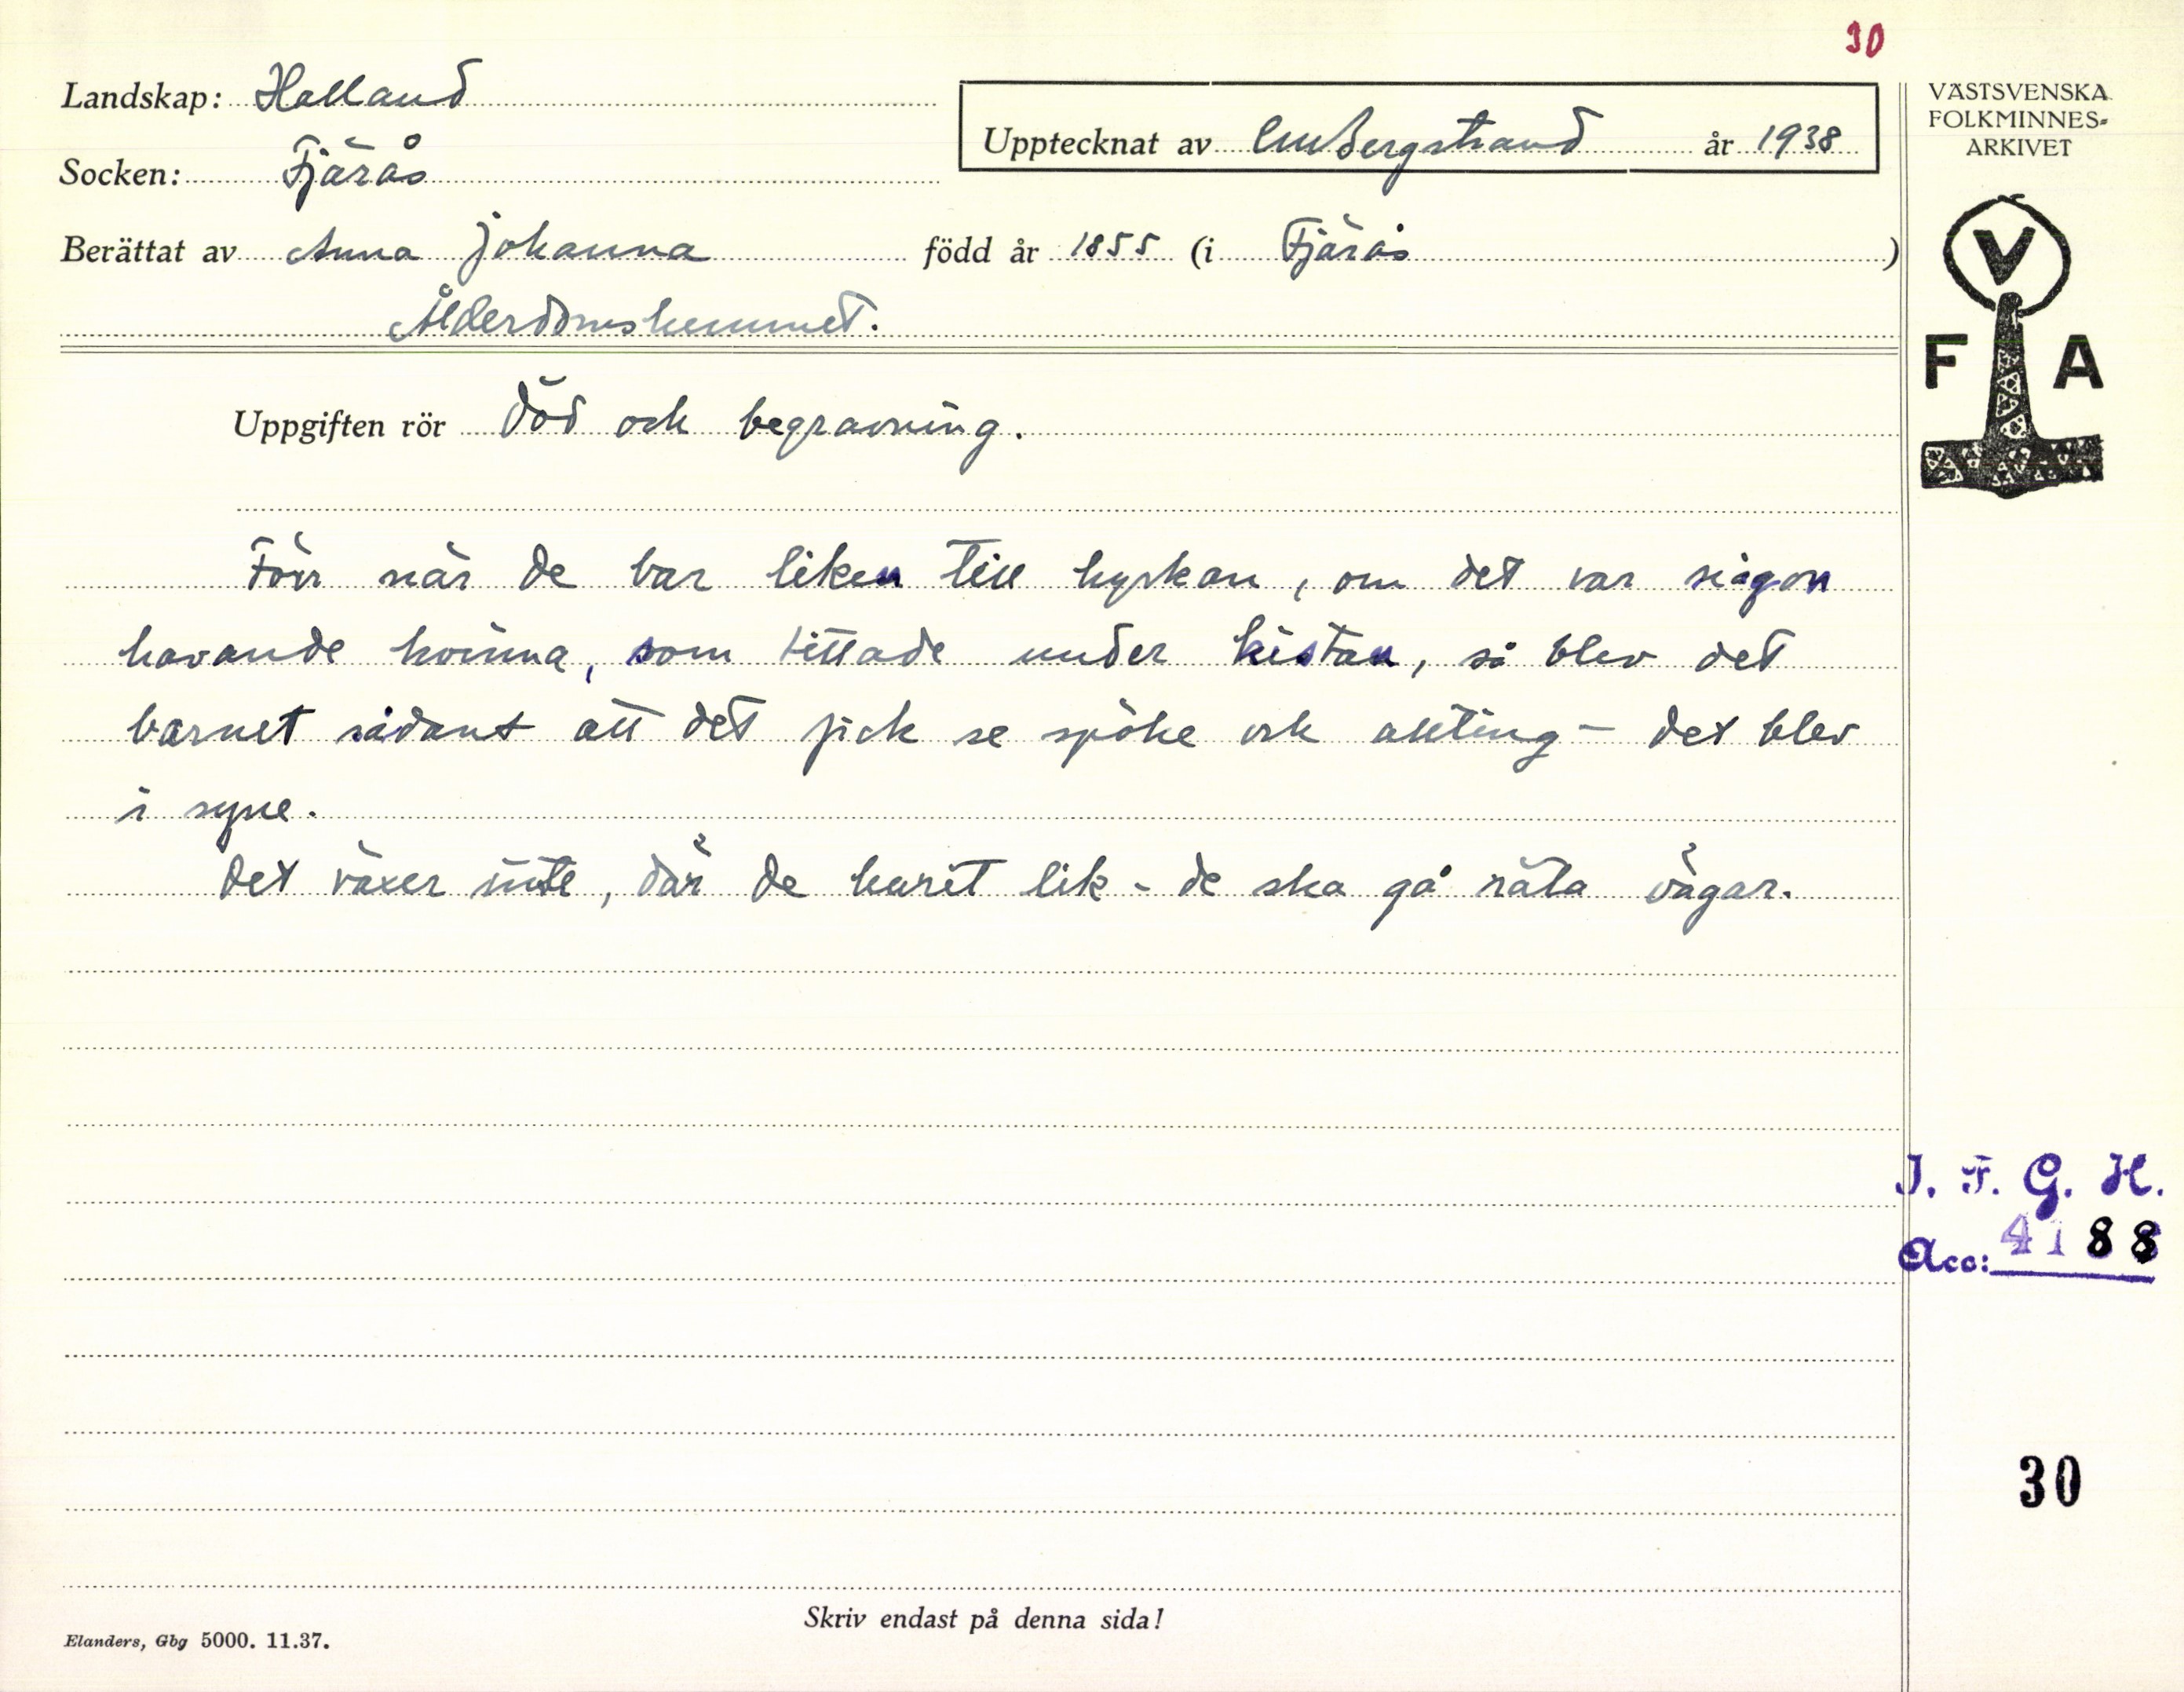 30
Landskap: Halland
Upptecknat av CMBergstrand år 1938
VÄSTSVENSKA
FOLKMINNES-
ARKIVET
Socken: Fjärås
Berättat av Anna Johanna född år 1855 (i Fjärås)
Ålderdomshemmet.
V
F A
Uppgiften rör Död och begravning.
Förr när de bar liken till kyrkan, om det var någon
havande kvinna, som tittade under kistan, så blev det
barnet sådant att det fick se spöke och allting – det blev
i syne.
Det växer inte, där de burit lik – de ska gå räta vägar.
I. F. G. H.
Acc: 4188
30
Skriv endast på denna sida!
Elanders, Gbg 5000. 11.37.